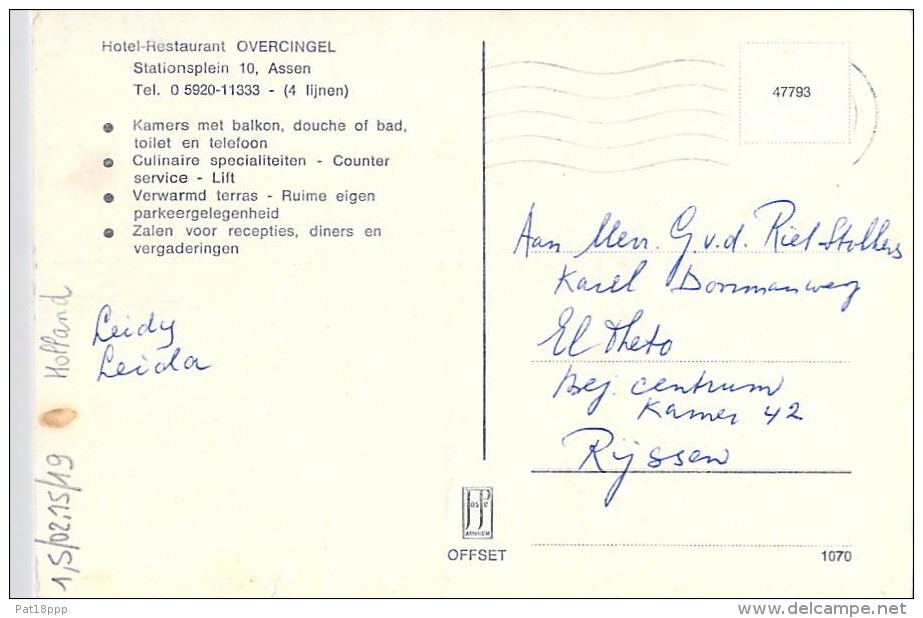 Hotel-Restaurant OVERCINGEL
Stationsplein 10, Assen
Tel. 0 5920-11333 - (4 lijnen)
Kamers met balkon, douche of bad,
toilet en telefoon
Culinaire specialiteiten - Counter
service - Lift
Verwarmd terras - Ruime eigen
parkeergelegenheid
Zalen voor recepties, diners en
vergaderingen
47793
Aan Mevr. G v.d. Riet-Stokkers
Karel Doormanweg
El Theto
Bej. centrum
Kamer 42
Rijssen
Leidy
Leida
Holland
1,5/0215/19
JosPé
ARNHEM
OFFSET
1070
Pat18ppp
www.delcampe.net